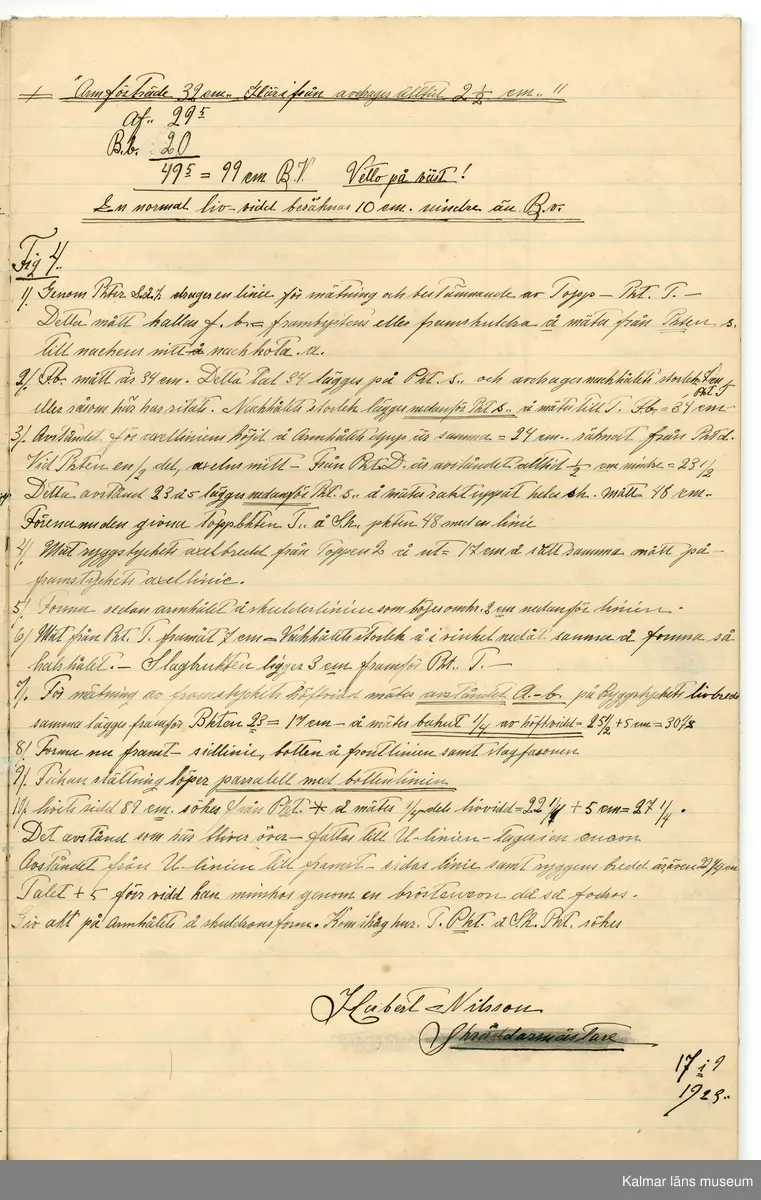 + "Armförträde 32 cm.. Härifrån avdrages Alltid 2 1/2 cm.. "
Af.. 29 5
B.b. 20
49 5 = 99 cm B.V. Vello på väst!
En normal liv-vidd beräknas 10 cm. mindre än B.v.
Fig 4..
1). Genom Pkter S.2.½. drages en linie för mätning och bestämmande av Topp - Pkt. T. -
Detta mått kallas f.b. = frambystens eller framskuldra å mäta från Pkten s.
till nackens mitt å nackhåla. a.
2/. Fb. mått är 34 cm. Detta tal 34 lägges på Pkt. s.. och avdrages nackhålets storlek 7 cm
Pkt T
eller såsom här har ritats. Nackhålets storlek lägges nedanför Pkt s.. å mäta till T. Fb = 34 cm
3/. Avståndet för axelliniens höjd å Armhålets djup är samma = 24 cm.. räknat från Pkt d.
Vid Pkten en 1/2 del, axelns mitt - Från Pkt D. är avståndet alltid 1/2 cm mindre = 23 1/2
Detta avstånd 23 å 5 lägges nedanför Pkt. s.. å mätes rakt uppåt hela sk. mått 48 cm-
Förena nu den givna Toppkten T.. å Sk. pkten 48 med en linie
4/. Mät ryggstyckets axelbredd från Toppen 2 å ut = 17 cm å sätt samma mått på
framstyckets axellinie.
5/. Forma sedan armhålet å skulderlinien som böjes omkr. 2 cm nedanför linien.
6/ Mät från Pkt. T. framåt 7 cm = Nackhålets storlek å i vinkel nedåt samma å forma så
halshålet. - Slagbrukten ligger 3 cm framför Pkt.. T. -
7/. För mätning av framstyckets höftvidd mätes avståndet A.-b. på Ryggstyckets livbredd
samma lägges framför Bkten 23 = 17 cm - å mätes bakut 1/4 av höftvidd = 25 1/2 + 5 cm = 30 1/2
8/ Forma nu framst - sidlinie, botten å frontlinien samt slagfasonen
9/. Fickan ställning löper parralell med bottenlinien
10. livets vidd 89 cm. sökes från Pkt. * å mäta 1/4 dels livvidd = 22 1/4 + 5 cm = 27 1/4.
Det avstånd som här bliver över - fattas till U-linien - tages in en con
Avståndet från U-linien till framst - sidas linie samt ryggens bredd är även 27 1/4 cm
Talet + 5 förr vidd kan minskas genom en bröstencon då så fodras.
Giv akt på Armhålets å skuldrans form. Kom ihåg hur. T. Pkt. å Sk. Pkt. sökes
Hubert Nilsson
Skräddarmästare
17 i 9
1923..
Kalmar läns museum